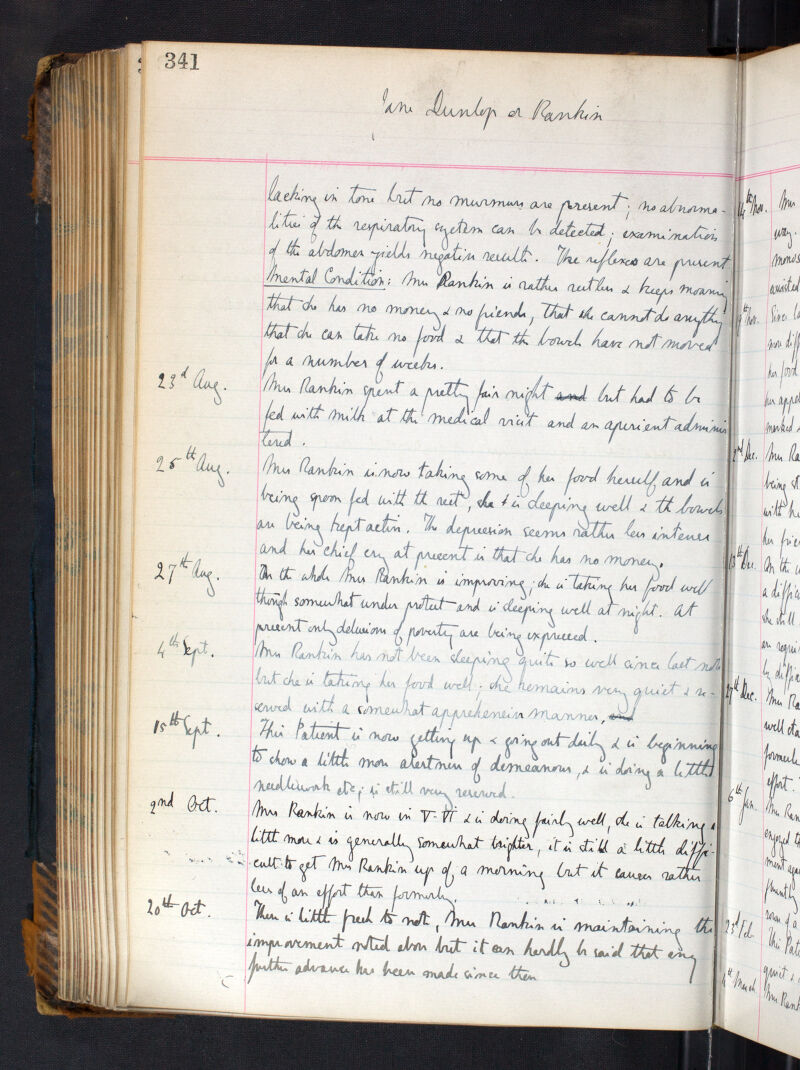 341
Jane Dunlop or Rankin
lacking in tone but no murmurs are present; no abnorma-
lities of the respiratory system can be detected; examination
of the abdomen yields negative results. The reflexes are present
Mental Condition: Mrs Rankin is rather restless & keeps moaning
that she has no money & no friends, that she cannot do anything
that she can take no food & that the bowels have not moved
for a number of weeks.
23rd Aug. Mrs Rankin spent a pretty fair night and but had to be
fed with milk at the medical visit and an aperient adminis
tered.
25th Aug. Mrs Rankin is now taking some of her food herself and is
being spoon fed with the rest, she & is sleeping well & the bowels
are being kept active. The depression seems rather less intense
and her chief cry at present is that she has no money.
27th Aug. On the whole Mrs Rankin is improving; she is taking her food well
though somewhat under protest and is sleeping well at night. At
present only delusions of poverty are being expressed.
4th Sept. Mrs Rankin has not been sleeping quite so well since last note
but she is taking her food well; she remains very quiet & re-
served with a somewhat apprehensive manner, and
15th Sept. This Patient is now getting up & going out daily & is beginning
to show a little more alertness of demeanour, & is doing a little
needlework etc; is still very reserved.
2nd Oct. Mrs Rankin is now in V-VI & is doing fairly well, she is talking a
little more & is generally somewhat brighter, it is still a little diffi-
cult to get Mrs Rankin up of a morning but it causes rather
less of an effort than formerly.
20th Oct. There is little fresh to note, Mrs Rankin is maintaining the
improvement noted above but it can hardly be said that any
further advance has been made since then
14th Nov. Mrs
way.
monos
assisted
9th Nov. Since la
more diff
her food
her appe
marked &
2nd Dec. Mrs Ra
being st
with he
her frie
13th Dec. On the w
a diffic
she still
an requi
by diffic
27th Dec. Mrs Ra
well sta
formerly
effort.
6th Jan. Mrs Ran
enjoyed to
ment aga
room of a
23rd Feb. This Pati
quiet &
4th March Mrs Rank